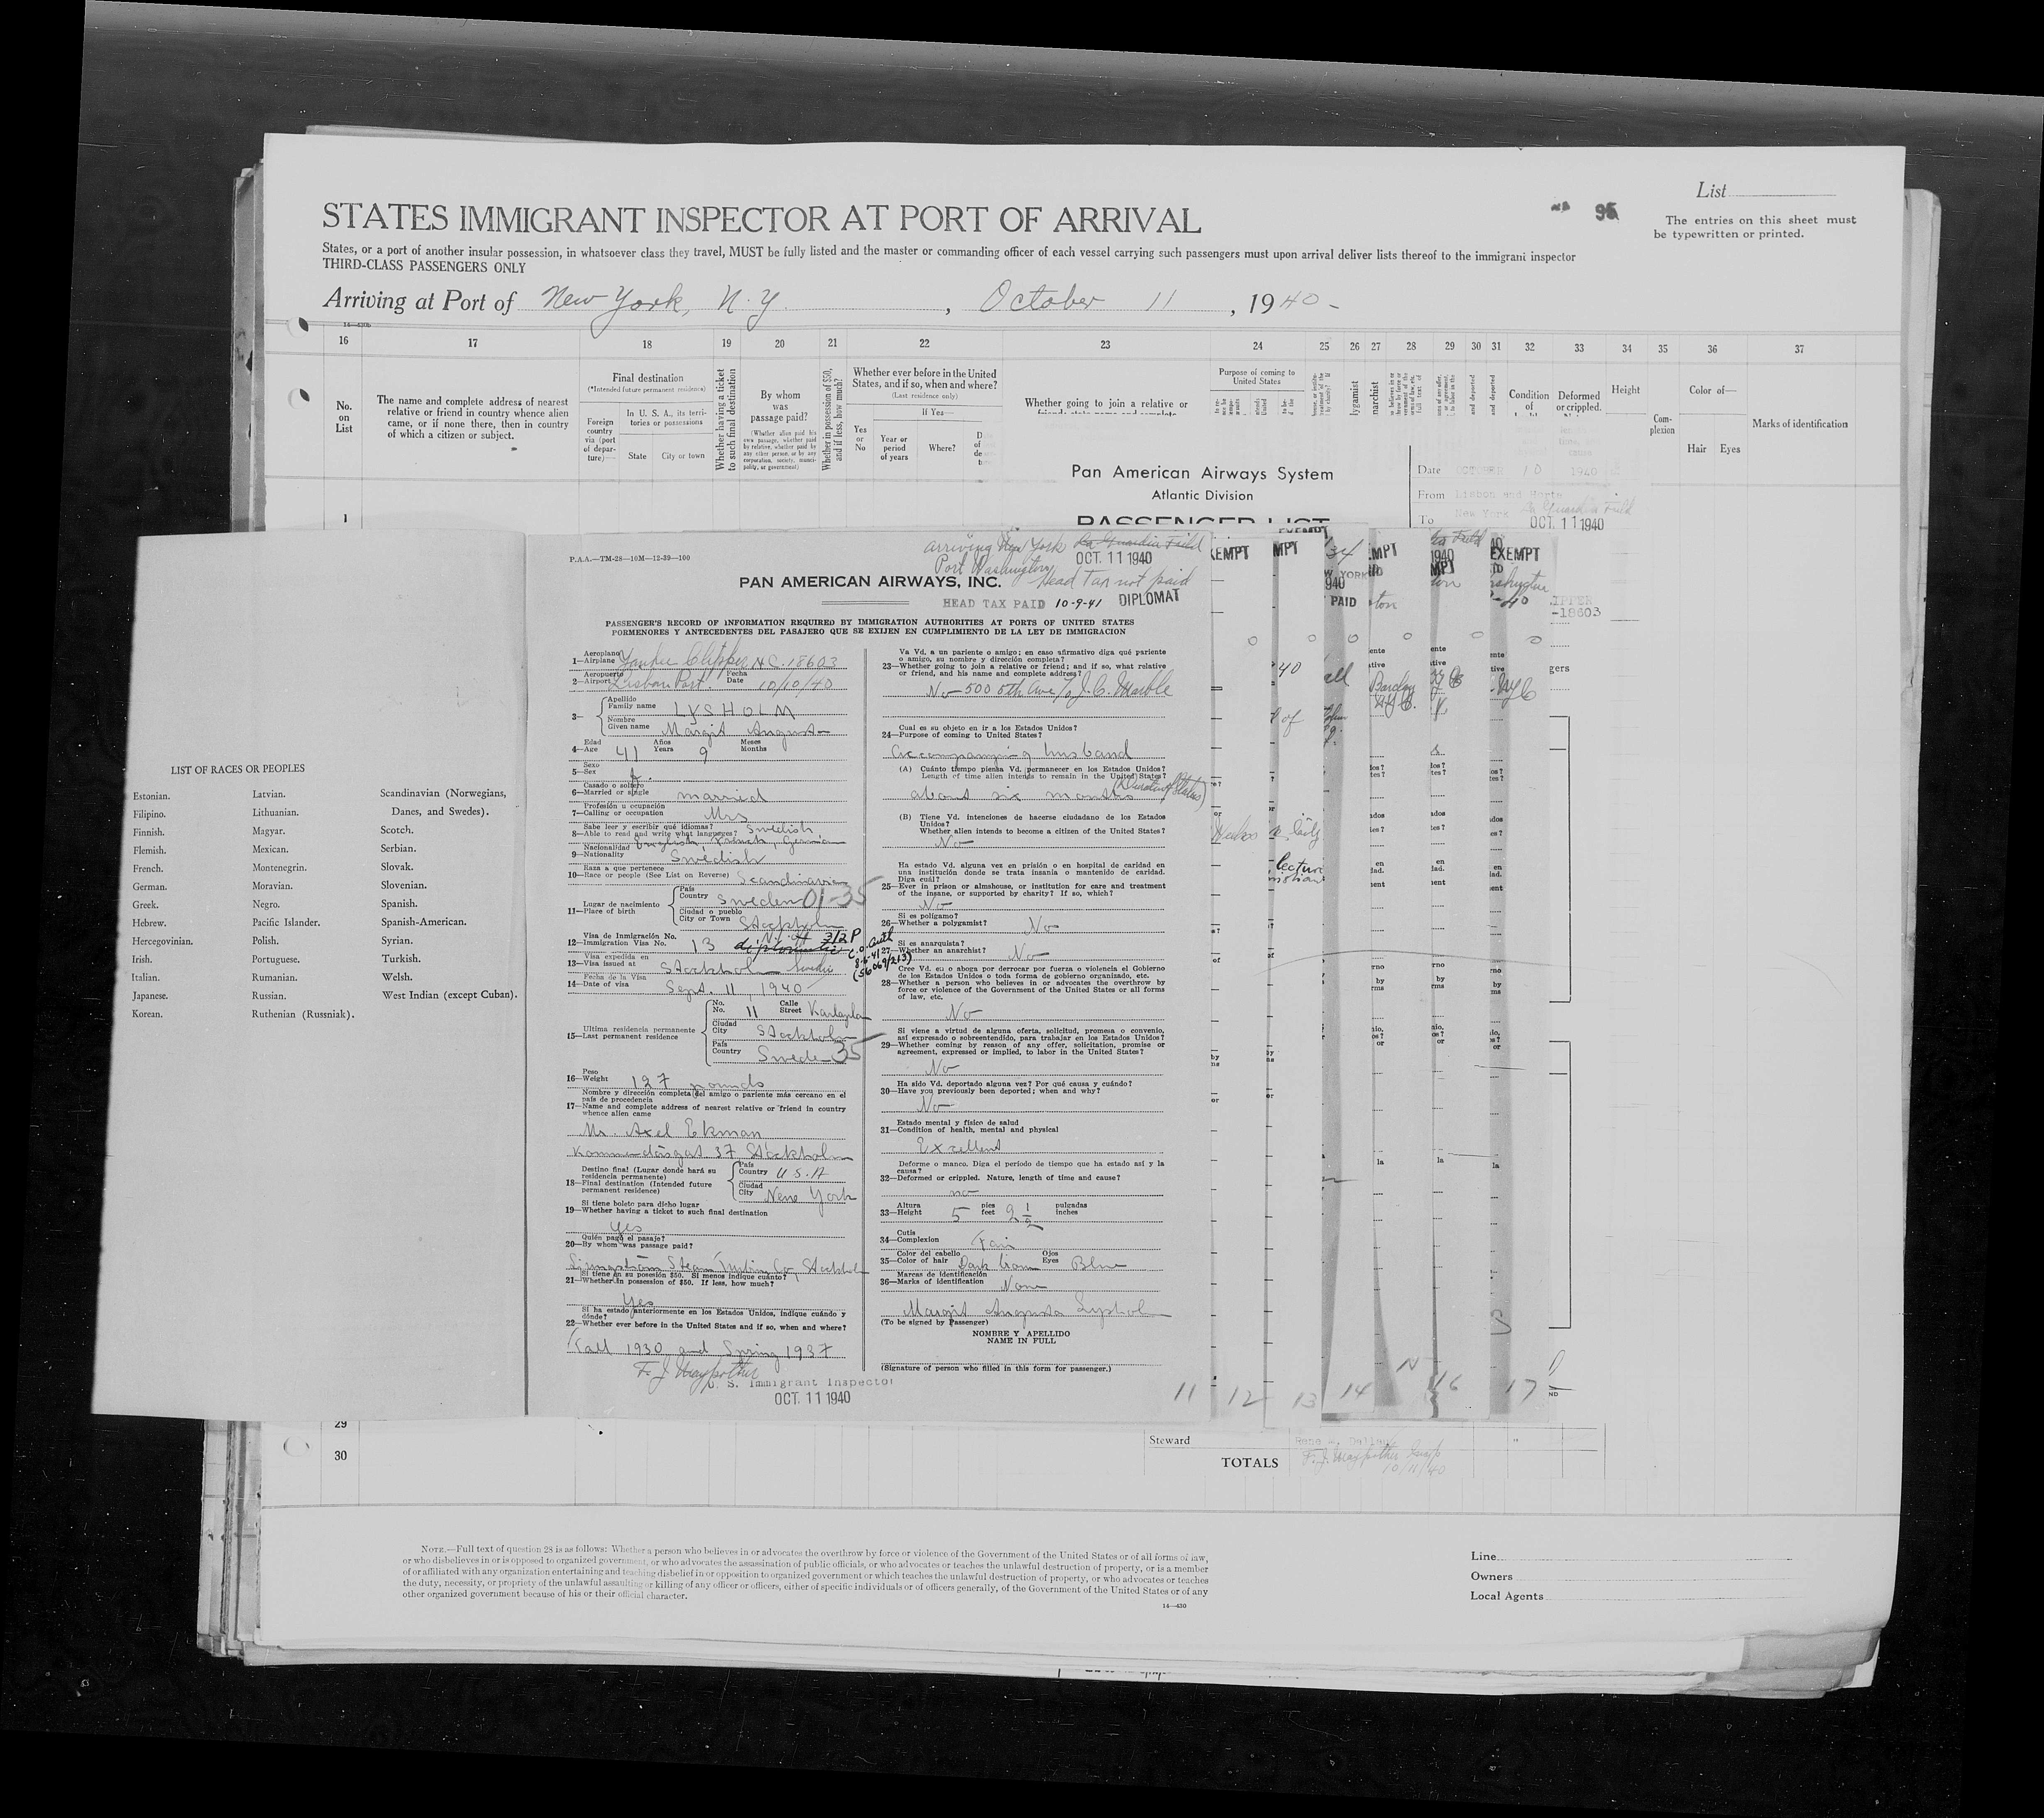 List
95
The entries on this sheet must
be typewritten or printed.
STATES IMMIGRANT INSPECTOR AT PORT OF ARRIVAL
States, or a port of another insular possession, in whatsoever class they travel, MUST be fully listed and the master or commanding officer of each vessel carrying such passengers must upon arrival deliver lists thereof to the immigrant inspector
THIRD-CLASS PASSENGERS ONLY
Arriving at Port of New York, N.Y. , October 11 , 1940-
14—430b
16 17 18 19 20 21 22 23 24 25 26 27 28 29 30 31 32 33 34 35 36 37
No.
on
List
The name and complete address of nearest
relative or friend in country whence alien
came, or if none there, then in country
of which a citizen or subject.
Final destination
(*Intended future permanent residence)
Foreign
country
via (port
of depar-
ture)—
In U. S. A., its terri-
tories or possessions
State City or town
Whether having a ticket
to such final destination
By whom
was
passage paid?
(Whether alien paid his
own passage, whether paid
by relative, whether paid by
any other person, or by any
corporation, society, munici-
pality, or government)
Whether in possession of $50,
and if less, how much?
Whether ever before in the United
States, and if so, when and where?
(Last residence only)
If Yes—
Yes
or
No
Year or
period
of years
Where?
Whether going to join a relative or
Purpose of coming to
United States
Condition
of
Deformed
or crippled.
Height
Com-
plexion
Color of—
Hair Eyes
Marks of identification
Pan American Airways System
Atlantic Division
PASSENGER LIST
Date OCTOBER 10 1940
From Lisbon and Horta
To New York La Guardia Field
OCT. 11 1940
1
LIST OF RACES OR PEOPLES
Estonian.
Filipino.
Finnish.
Flemish.
French.
German.
Greek.
Hebrew.
Hercegovinian.
Irish.
Italian.
Japanese.
Korean.
Latvian.
Lithuanian.
Magyar.
Mexican.
Montenegrin.
Moravian.
Negro.
Pacific Islander.
Polish.
Portuguese.
Rumanian.
Russian.
Ruthenian (Russniak).
Scandinavian (Norwegians,
Danes, and Swedes).
Scotch.
Serbian.
Slovak.
Slovenian.
Spanish.
Spanish-American.
Syrian.
Turkish.
Welsh.
West Indian (except Cuban).
P.A.A.—TM-28—10M—12-39—100
arriving New York La Guardia Field
Port Washington OCT. 11 1940
PAN AMERICAN AIRWAYS, INC.
Head Tax not paid
HEAD TAX PAID 10-9-41 DIPLOMAT
PASSENGER'S RECORD OF INFORMATION REQUIRED BY IMMIGRATION AUTHORITIES AT PORTS OF UNITED STATES
PORMENORES Y ANTECEDENTES DEL PASAJERO QUE SE EXIJEN EN CUMPLIMIENTO DE LA LEY DE IMMIGRACION
Aeroplano
1—Airplane Yankee Clipper NC.18603
Aeropuerto Fecha
2—Airport Lisbon Port. Date 10/10/40
3—
Apellido
Family name LYSHOLM
Nombre
Given name Margit Augusta
Edad Años Meses
4—Age 41 Years 9 Months
Sexo
5—Sex f.
Casado o soltero
6—Married or single married
Profesión u ocupación
7—Calling or occupation Mrs
Sabe leer y escribir qué idiomas?
8—Able to read and write what languages? Swedish
English, French, German
Nacionalidad
9—Nationality Swedish
Raza a que pertenece
10—Race or people (See List on Reverse) Scandinavian
Lugar de nacimiento
11—Place of birth
País
Country Sweden 01-35
Ciudad o pueblo
City or Town Stockholm
Visa de Inmigración No.
12—Immigration Visa No. 13 diplomatic 3(2)P
C.O. Auth
8-6-41
(56069/213)
Visa expedida en
13—Visa issued at Stockholm Sweden
Fecha de la Visa
14—Date of visa Sept. 11, 1940
Ultima residencia permanente
15—Last permanent residence
No. Calle
No. 11 Street Karlaplan
Ciudad
City Stockholm
País
Country Sweden 35
Peso
16—Weight 127 pounds
Nombre y dirección completa del amigo o pariente más cercano en el
país de procedencia
17—Name and complete address of nearest relative or friend in country
whence alien came
Mr. Axel Ekman
Kommendörsgat 37, Stockholm
Destino final (Lugar donde hará su
residencia permanente)
18—Final destination (Intended future
permanent residence)
País
Country U.S.A
Ciudad
City New York
Si tiene boleto para dicho lugar
19—Whether having a ticket to such final destination
Yes
Quién pagó el pasaje?
20—By whom was passage paid?
Ljungström Steam Turbine Co, Stockholm
Si tiene en su posesión $50. Si menos indique cuánto?
21—Whether in possession of $50. If less, how much?
Yes
Si ha estado anteriormente en los Estados Unidos, indique cuándo y
dónde?
22—Whether ever before in the United States and if so, when and where?
Fall 1930 and Spring 1937
U. S. Immigrant Inspector
OCT. 11 1940
Va Vd. a un pariente o amigo; en caso afirmativo diga qué pariente
o amigo, su nombre y dirección completa?
23—Whether going to join a relative or friend; and if so, what relative
or friend, and his name and complete address?
No - 500 5th Ave % J. C. Marble
Cual es su objeto en ir a los Estados Unidos?
24—Purpose of coming to United States?
accompanying husband
(A) Cuánto tiempo piensa Vd. permanecer en los Estados Unidos?
Length of time alien intends to remain in the United States?
about six months (Duration of Status)
(B) Tiene Vd. intenciones de hacerse ciudadano de los Estados
Unidos?
Whether alien intends to become a citizen of the United States?
No
Ha estado Vd. alguna vez en prisión o en hospital de caridad en
una institución donde se trata insania o mantenido de caridad.
Diga cuál?
25—Ever in prison or almshouse, or institution for care and treatment
of the insane, or supported by charity? If so, which?
No
Si es polígamo?
26—Whether a polygamist? No
Si es anarquista?
27—Whether an anarchist? No
Cree Vd. en o aboga por derrocar por fuerza o violencia el Gobierno
de los Estados Unidos o toda forma de gobierno organizado, etc.
28—Whether a person who believes in or advocates the overthrow by
force or violence of the Government of the United States or all forms
of law, etc.
No
Si viene a virtud de alguna oferta, solicitud, promesa o convenio,
así expresado o sobreentendido, para trabajar en los Estados Unidos?
29—Whether coming by reason of any offer, solicitation, promise or
agreement, expressed or implied, to labor in the United States?
No
Ha sido Vd. deportado alguna vez? Por qué causa y cuándo?
30—Have you previously been deported; when and why?
No
Estado mental y físico de salud
31—Condition of health, mental and physical
Excellent
Deforme o manco. Diga el período de tiempo que ha estado así y la
causa?
32—Deformed or crippled. Nature, length of time and cause?
no
Altura pies pulgadas
33—Height 5 feet 2 1/2 inches
Cutis
34—Complexion Fair
Color del cabello Ojos
35—Color of hair Dark brown Eyes Blue
Marcas de identificación
36—Marks of identification None
Margit Augusta Lysholm
(To be signed by Passenger)
NOMBRE Y APELLIDO
NAME IN FULL
(Signature of person who filled in this form for passenger.)
11 12 13 14 16 17
EXEMPT
PAID
-18603
29
30
Steward
TOTALS
10/11/40
NOTE.—Full text of question 28 is as follows: Whether a person who believes in or advocates the overthrow by force or violence of the Government of the United States or of all forms of law,
or who disbelieves in or is opposed to organized government, or who advocates the assassination of public officials, or who advocates or teaches the unlawful destruction of property, or is a member
of or affiliated with any organization entertaining and teaching disbelief in or opposition to organized government or which teaches the unlawful destruction of property, or who advocates or teaches
the duty, necessity, or propriety of the unlawful assaulting or killing of any officer or officers, either of specific individuals or of officers generally, of the Government of the United States or of any
other organized government because of his or their official character.
14—430
Line
Owners
Local Agents